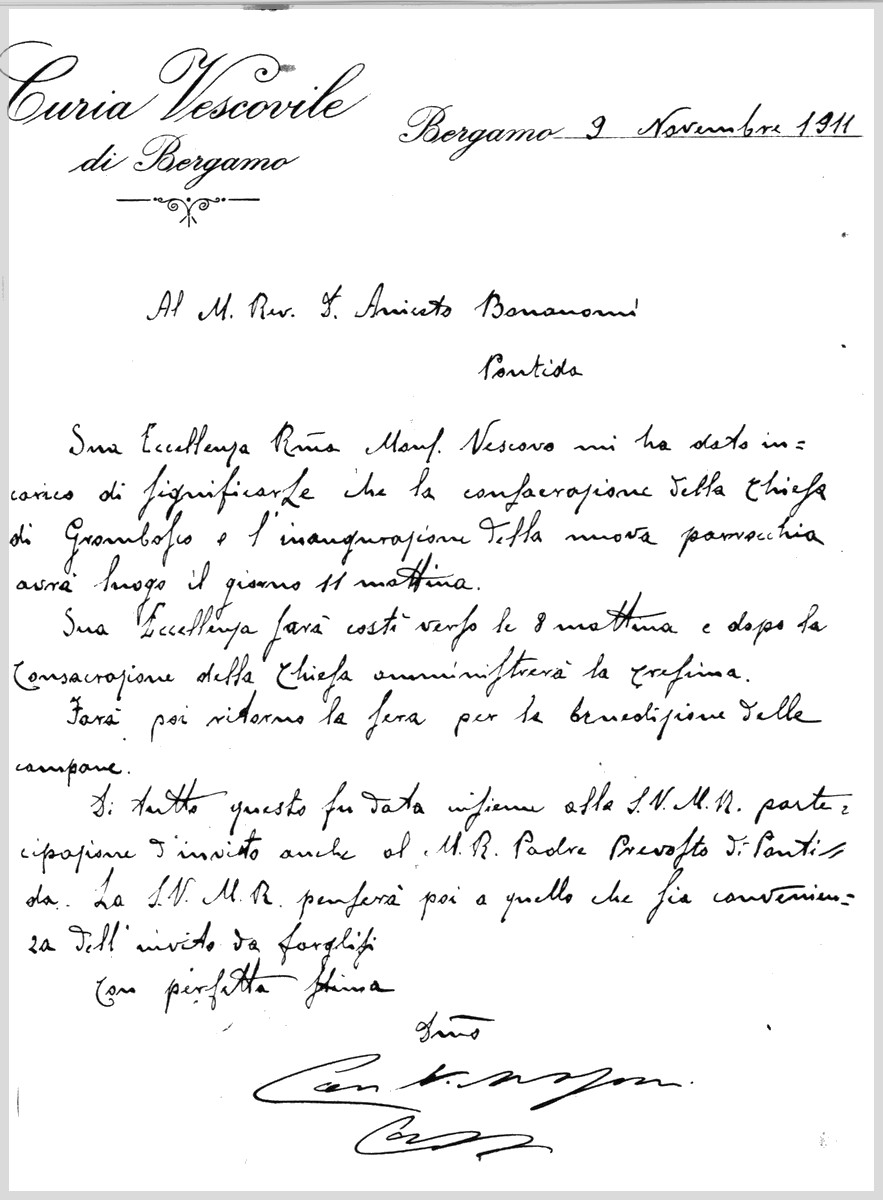 Curia Vescovile
di Bergamo
Bergamo 9 Novembre 1911
Al M. Rev. D. Aniceto Bonanomi
Pontida
Sua Eccellenza Rma Mons. Vescovo mi ha dato in=
carico di significarLe che la consacrazione della Chiesa
di Grombosco e l'inaugurazione della nuova parrocchia
avrà luogo il giorno 11 mattina.
Sua Eccellenza sarà costì verso le 8 mattina e dopo la
Consacrazione della Chiesa amministrerà la Cresima.
Farà poi ritorno la sera per la benedizione delle
campane.
Di tutto questo fu data insieme alla S.V.M.R. parte=
cipazione d'invito anche al M.R. Padre Prevosto di Ponti=
da. La S.V.M.R. penserà poi a quello che sia convenien=
za dell'invito da farglisi
Con perfetta stima
Dmo
Can V.